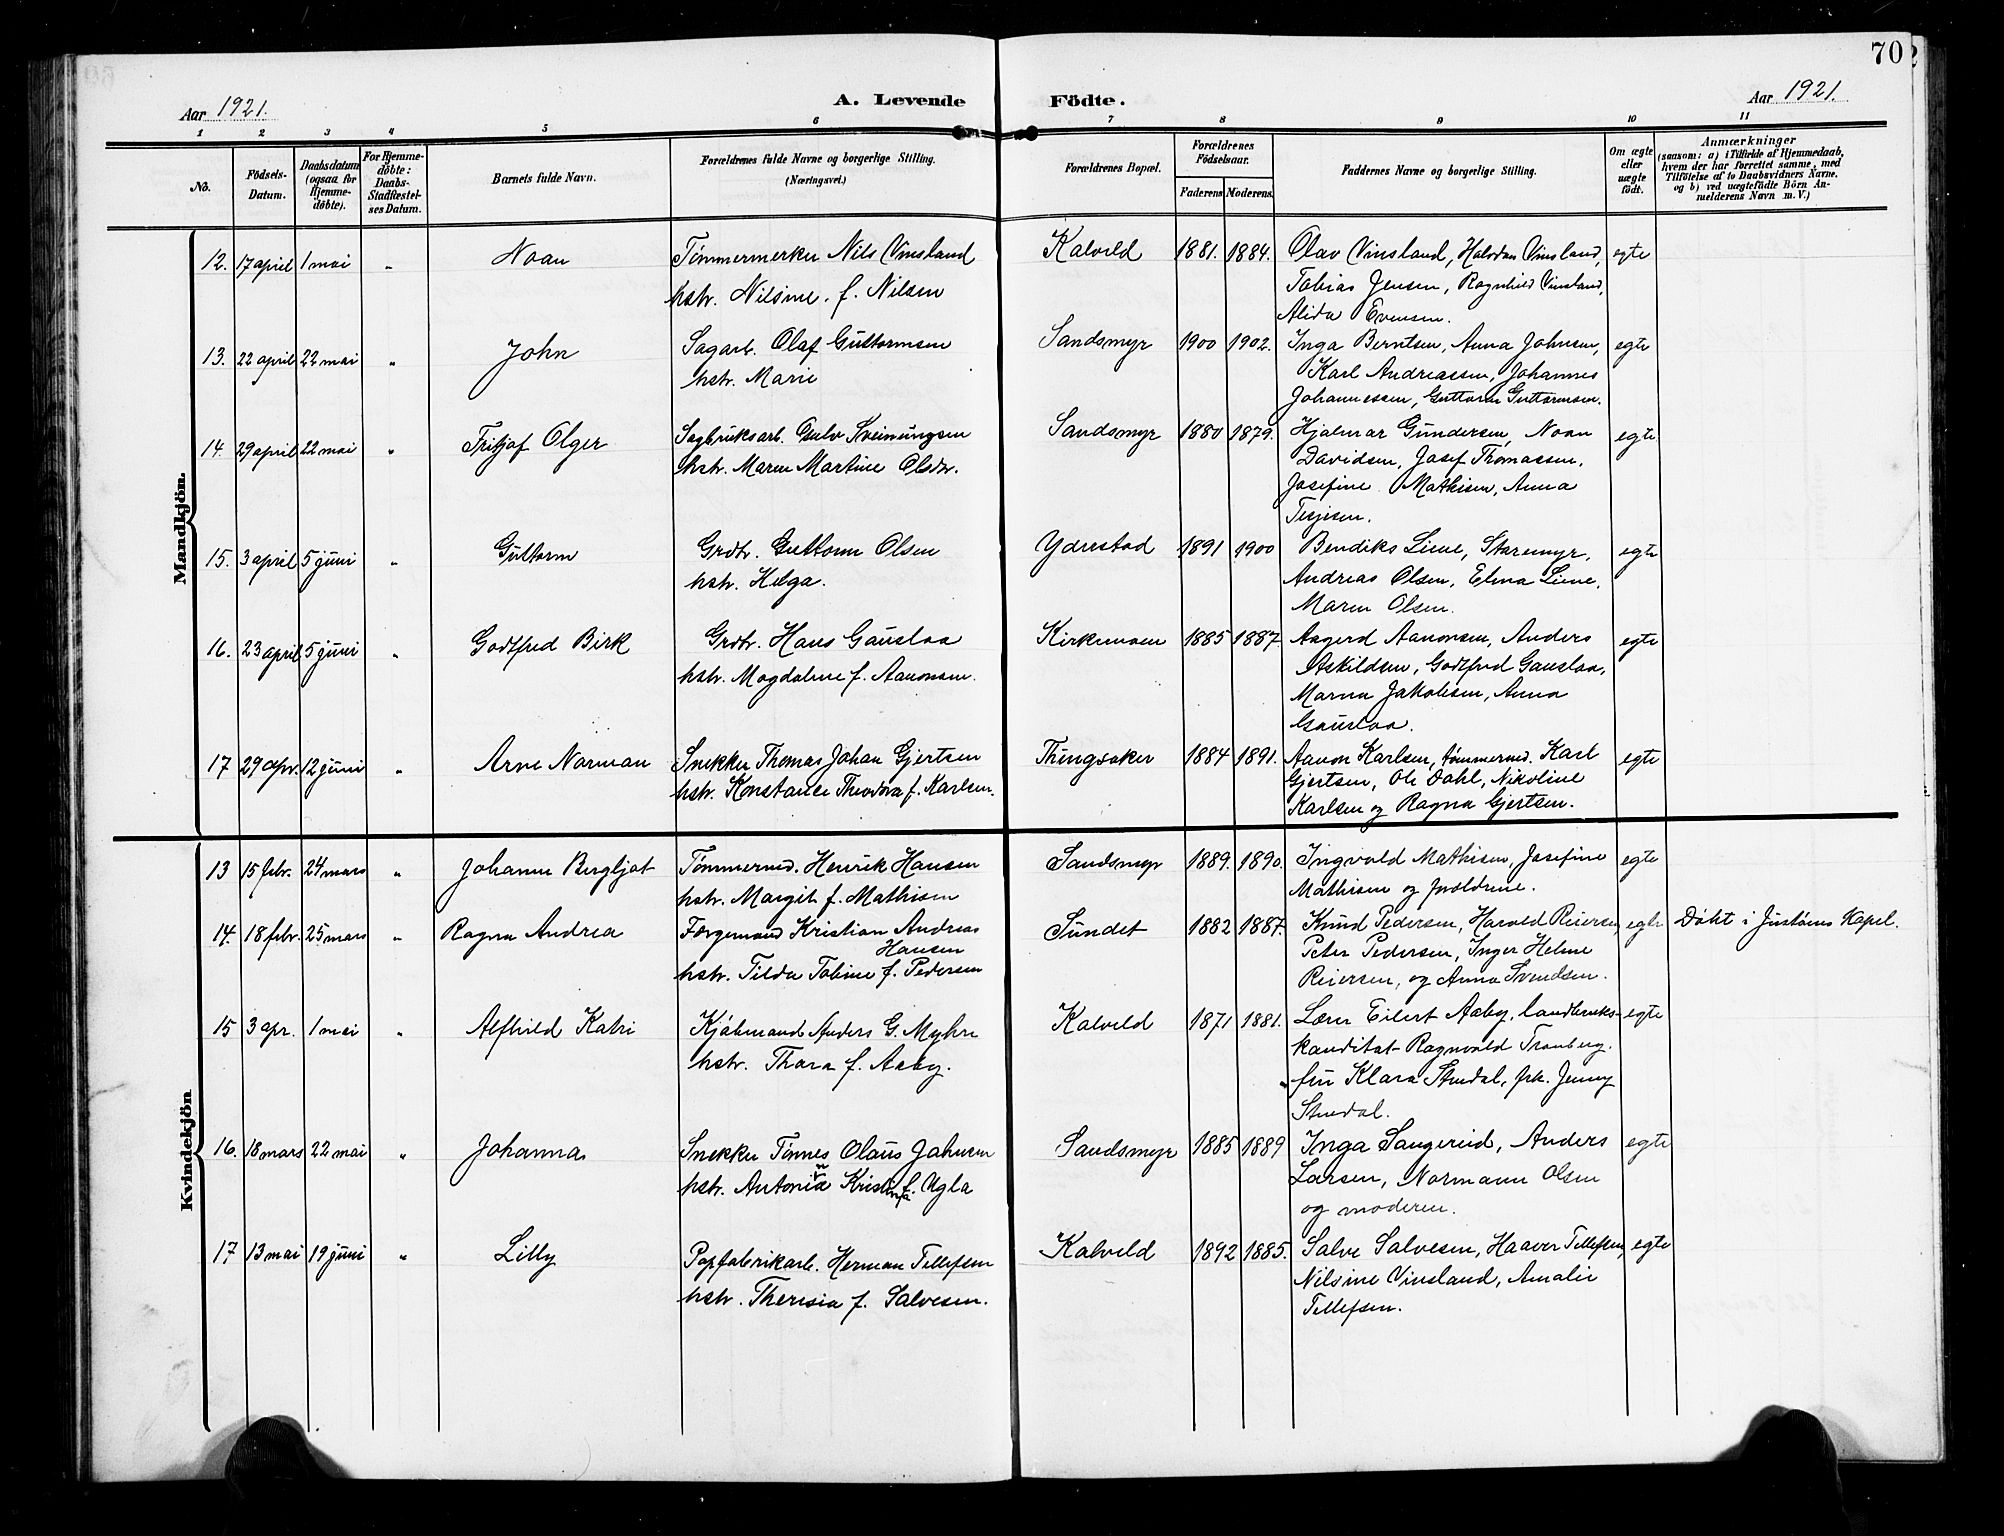 70
Aar 1921.
A. Levende Födte.
Aar 1921.
1 2 3 4 5 6 7 8 9 10 11
No.
Födsels-
Datum.
Daabsdatum
(ogsaa for
Hjemme-
döbte).
For Hjemme-
döbte:
Daabs-
Stadfestel-
ses Datum.
Barnets fulde Navn.
Forældrenes fulde Navne og borgerlige Stilling.
(Næringsvei.)
Forældrenes Bopæl.
Forældrenes
Födselsaar.
Faderens Moderens.
Faddernes Navne og borgerlige Stilling.
Om ægte
eller
uægte
födt.
Anmærkninger
(saasom: a) i Tilfælde af Hjemmedaab,
hvem der har forrettet samme, med
Tilföielse af to Daabsvidners Navne.
og b) ved uægtefödte Börn An-
melderens Navn m. V.)
Mandkjön.
12. 17 april 1 mai " Noan Tømmermerker Nils Vinsland Kalveld 1881. 1884. Olav Vinsland, Halvdan Vinsland, egte
hstr. Nilsine. f. Nilsen Tobias Jensen, Ragnhild Vinsland,
Alida Evensen.
13. 22 april 22 mai " John Sagarb. Olaf Guttormsen Sandsmyr 1900 1902. Inga Berntsen, Anna Johnsen, egte
hstr. Marie Karl Andreassen, Johannes
Johannessen, Guttorm Guttormsen.
14. 29 april 22 mai " Fritjof Olger Sagbruksarb. Gulv Sveinungsen Sandsmyr 1880 1879. Hjalmar Gundersen, Noan egte
hstr. Maren Martine Olsdtr. Davidsen, Josef Thomassen,
Josefine Mathisen, Anna
Terjesen.
15. 3 april 5 juni " Guttorm Grdbr. Guttorm Olsen Yderstad 1891 1900 Bendiks Liene, Staremyr, egte
hstr. Helga. Andreas Olsen, Elma Liene,
Maren Olsen.
16. 23 april 5 juni " Godtfred Birk Grdbr. Hans Gauslaa Kirkemoen 1885 1887. Aagerd Aanonsen, Anders egte
hstr. Magdalene f. Aanonsen. Askildsen, Godtfred Gauslaa,
Marna Jakobsen, Anna
Gauslaa.
17 29 apr. 12 juni " Arne Norman Snekker Thomas Johan Gjertsen Thingsaker 1884 1891. Aanon Karlsen, tømmermd. Karl egte
hstr. Konstance Theodora f. Karlsen. Gjertsen, Ole Dahl, Nikoline
Karlsen og Ragna Gjertsen.
Kvindekjön
13 15 febr. 24 mars " Johanne Bergljot Tømmermd. Henrik Hansen Sandsmyr 1889. 1890. Ingvald Mathisen, Josefine egte
hstr. Margit f. Mathisen Mathisen og foreldrene.
14. 18 febr. 25 mars " Ragna Andrea Færgemand Kristian Andreas Sundet 1882 1887. Knud Pedersen, Harald Reiersen, egte Døbt i Justøens Kapel.
Hansen Peter Pedersen, Inger Helene
hstr. Tilda Tobine f. Pedersen Reiersen, og Anna Svendsen.
15 3 apr. 1 mai " Alfhild Katri Kjøbmand Anders G. Myhre Kalveld 1871 1881. Lærer Eilert Aaby, landbruks- egte
hstr. Thora f. Aaby. kanditat Ragnvald Tronberg.
fru Klara Stuedal, frk. Jenny
Stuedal.
16. 18 mars 22 mai " Johanna Snekker Tønnes Olaus Johnsen Sandsmyr 1885 1889 Inga Saugereid, Anders egte
hstr. Antonia Kristina f. Ugla Larsen, Normann Olsen
og moderen.
17 13 mai 19 juni " Lilly Papfabrikarb. Herman Tellefsen Kalveld 1892 1885. Salve Salvesen, Haaver Tellefsen, egte
hstr. Theresia f. Salvesen. Nilsine Vinsland, Amalie
Tellefsen.